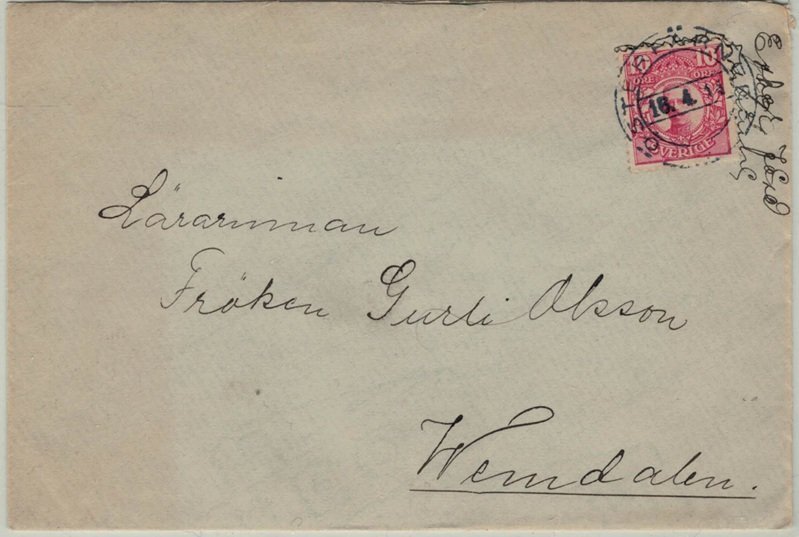 10
ÖRE ÖRE
16. 4.
SVERIGE
Lärarinnan
Fröken Gurli Olsson
Wemdalen.